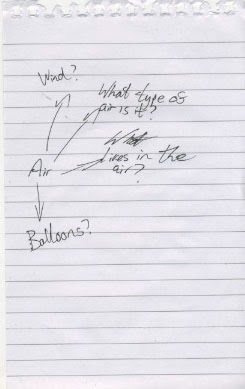 Wind?
What type of
air is it?
What
lives in the
air?
Air
Balloons?